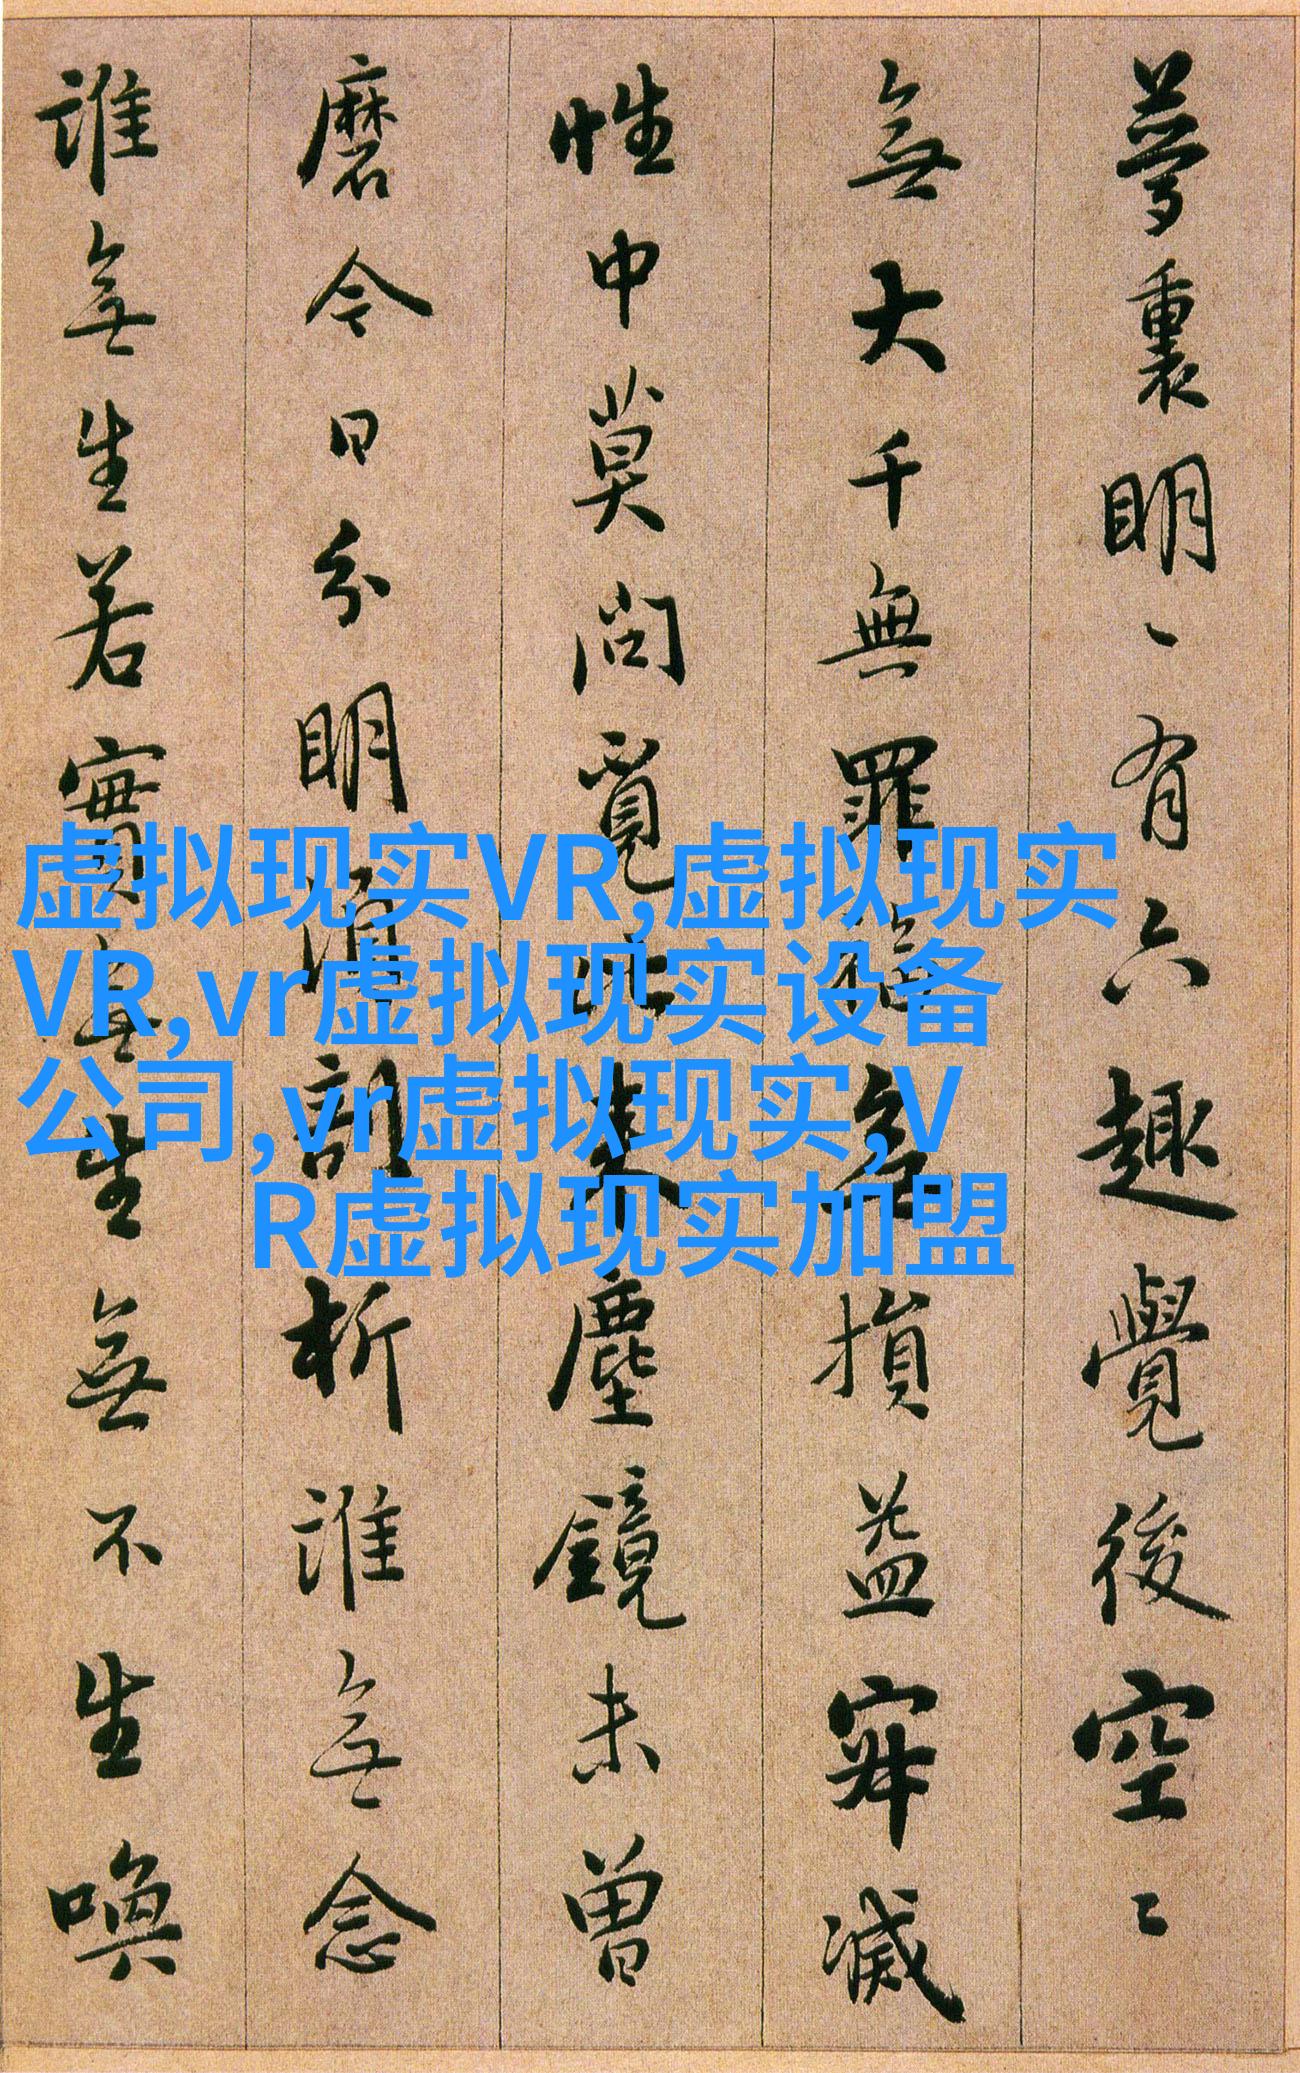 夢裏明丶有六趣覺後空〻
無大千無罪福無損益寂滅
性中莫問覓比來塵鏡未曾
磨今日分明須剖析誰無念
誰無生若實無生無不生喚
虚拟现实VR,虚拟现实
VR,vr虚拟现实设备
公司,vr虚拟现实,V
R虚拟现实加盟